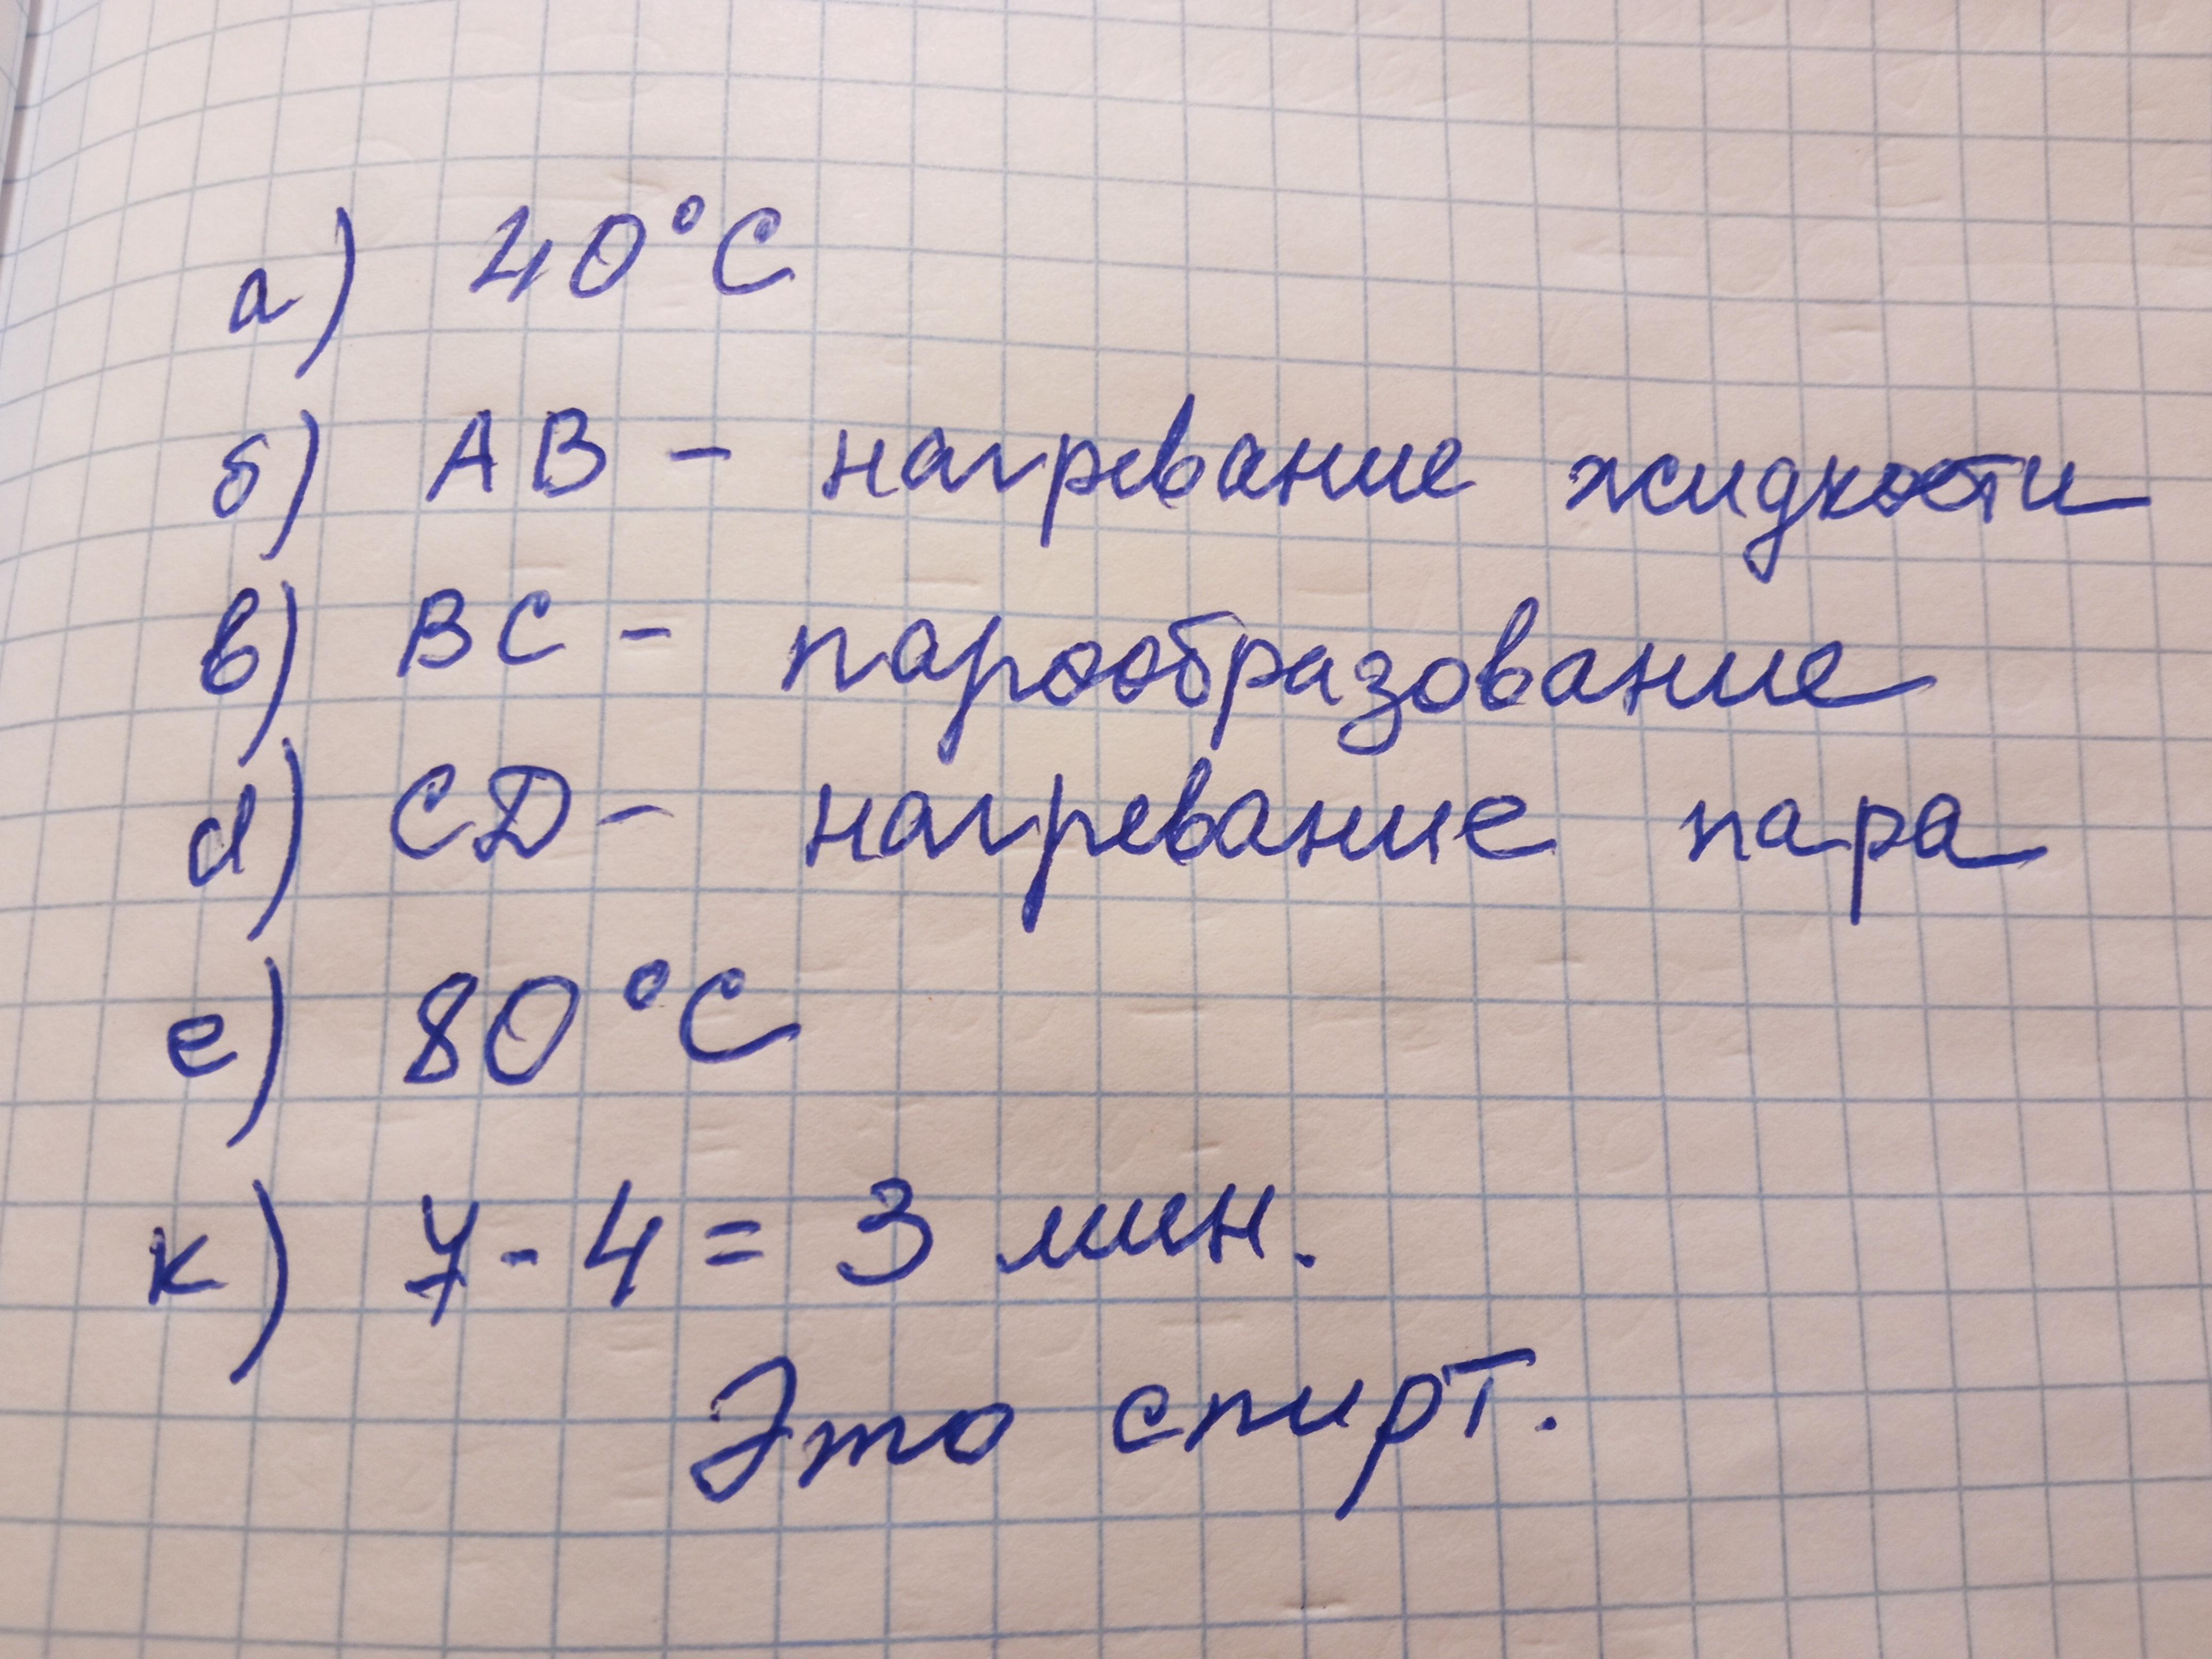 а) 40°С
б) АВ - нагревание жидкости
в) ВС - парообразование
d) СD - нагревание пара
е) 80°С
к) 7 - 4 = 3 мин.
Это спирт.